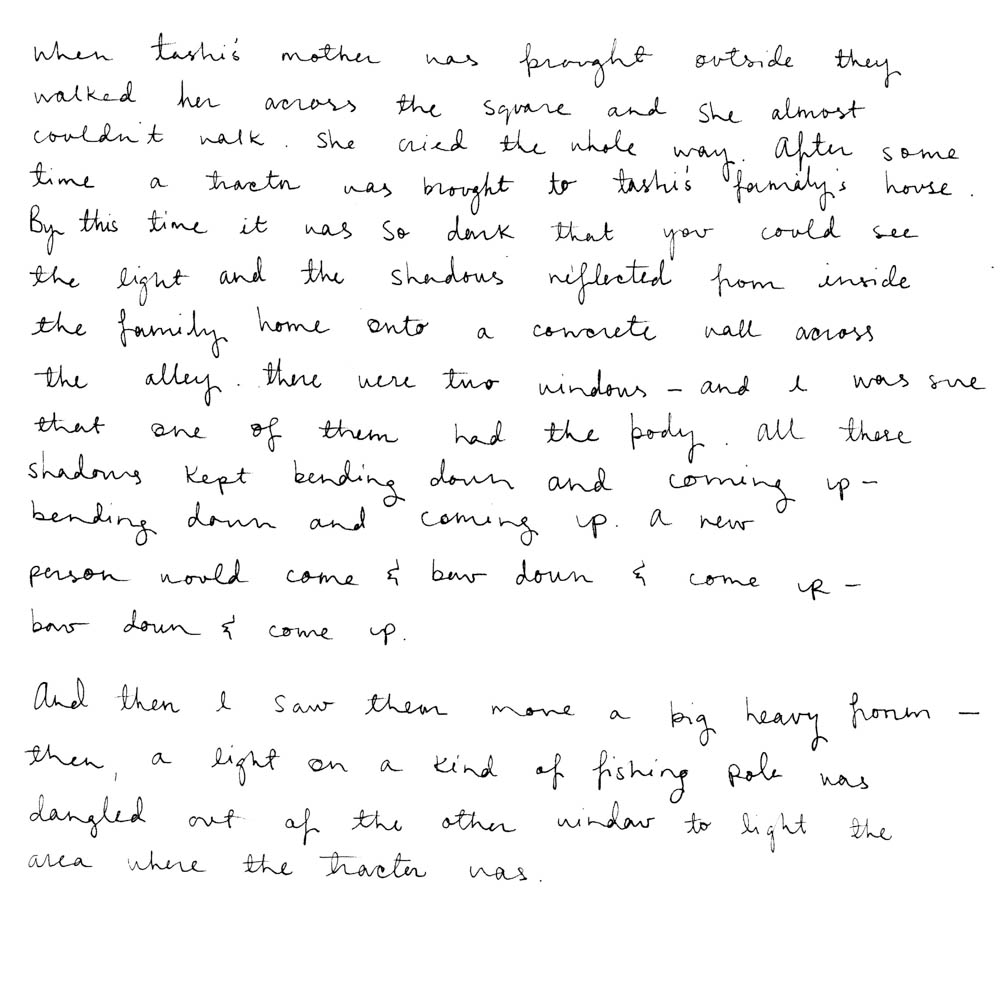 When tashi's mother was brought outside they
walked her across the square and she almost
couldn't walk. She cried the whole way. After some
time a tractor was brought to tashi's family's house.
By this time it was so dark that you could see
the light and the shadows reflected from inside
the family home onto a concrete wall across
the alley. there were two windows – and I was sure
that one of them had the body. all these
shadows kept bending down and coming up –
bending down and coming up. A new
person would come & bow down & come up –
bow down & come up.
And then I saw them move a big heavy –
then, a light on a kind of fishing pole was
dangled out of the other window to light the
area where the tractor was.